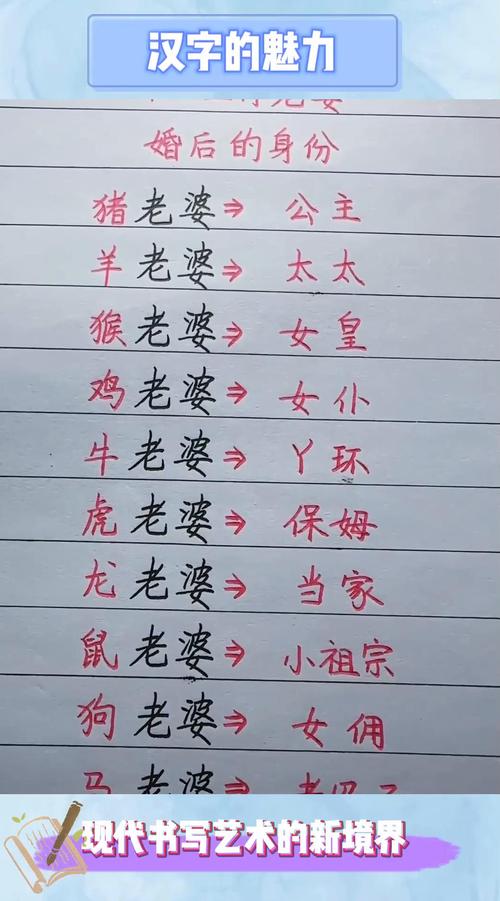 汉字的魅力
老婆
婚后的身份
猪老婆⇒ 公主
羊老婆⇒ 太太
猴老婆⇒ 女皇
鸡老婆⇒ 女仆
牛老婆⇒ 丫环
虎老婆⇒ 保姆
龙老婆⇒ 当家
鼠老婆⇒ 小祖宗
狗老婆⇒ 女佣
马老婆⇒ 老
现代书写艺术的新境界